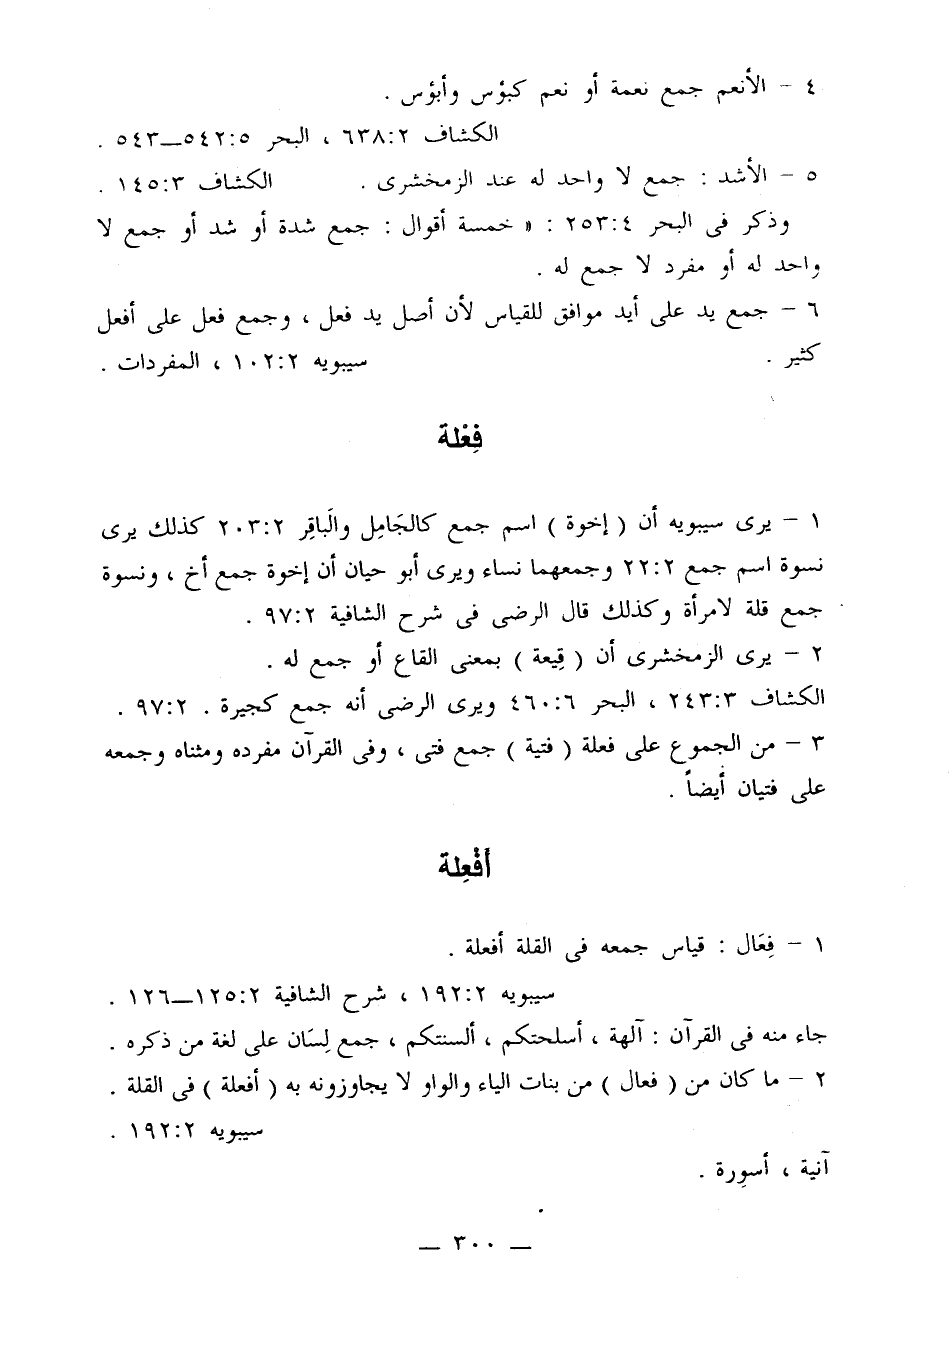 ٤ – الأنعم جمع نعمة أو نعم كبؤس وأبؤس .
الكشاف ٢:٦٣٨ ، البحر ٥:٥٤٢—٥٤٣ .
٥ – الأشد : جمع لا واحد له عند الزمخشرى . الكشاف ٣:١٤٥ .
وذكر فى البحر ٤:٢٥٣ : « خمسة أقوال : جمع شدة أو شد أو جمع لا
واحد له أو مفرد لا جمع له .
٦ – جمع يد على أيد موافق للقياس لأن أصل يد فعل ، وجمع فعل على أفعل
كثير . سيبويه ٢:١٠٢ ، المفردات .
فِعْلة
١ – يرى سيبويه أن ( إخوة ) اسم جمع كالجَامِل والَباقِر ٢:٢٠٣ كذلك يرى
نسوة اسم جمع ٢:٢٢ وجمعهما نساء ويرى أبو حيان أن إخوة جمع أخ ، ونسوة
جمع قلة لامرأة وكذلك قال الرضى فى شرح الشافية ٢:٩٧ .
٢ – يرى الزمخشرى أن ( قِيعة ) بمعنى القاع أو جمع له .
الكشاف ٣:٢٤٣ ، البحر ٦:٤٦٠ ويرى الرضى أنه جمع كجيرة . ٢:٩٧ .
٣ – من الجموع على فعلة ( فتية ) جمع فتى ، وفى القرآن مفرده ومثناه وجمعه
على فتيان أيضاً .
أَفْعِلة
١ – فِعَال : قياس جمعه فى القلة أفعلة .
سيبويه ٢:١٩٢ ، شرح الشافية ٢:١٢٥—١٢٦ .
جاء منه فى القرآن : آلهة ، أسلحتكم ، ألسنتكم ، جمع لِسَان على لغة من ذكره .
٢ – ما كان من ( فعال ) من بنات الياء والواو لا يجاوزونه به ( أفعلة ) فى القلة .
سيبويه ٢:١٩٢ .
آنية ، أسوِرة .
— ٣٠٠ —